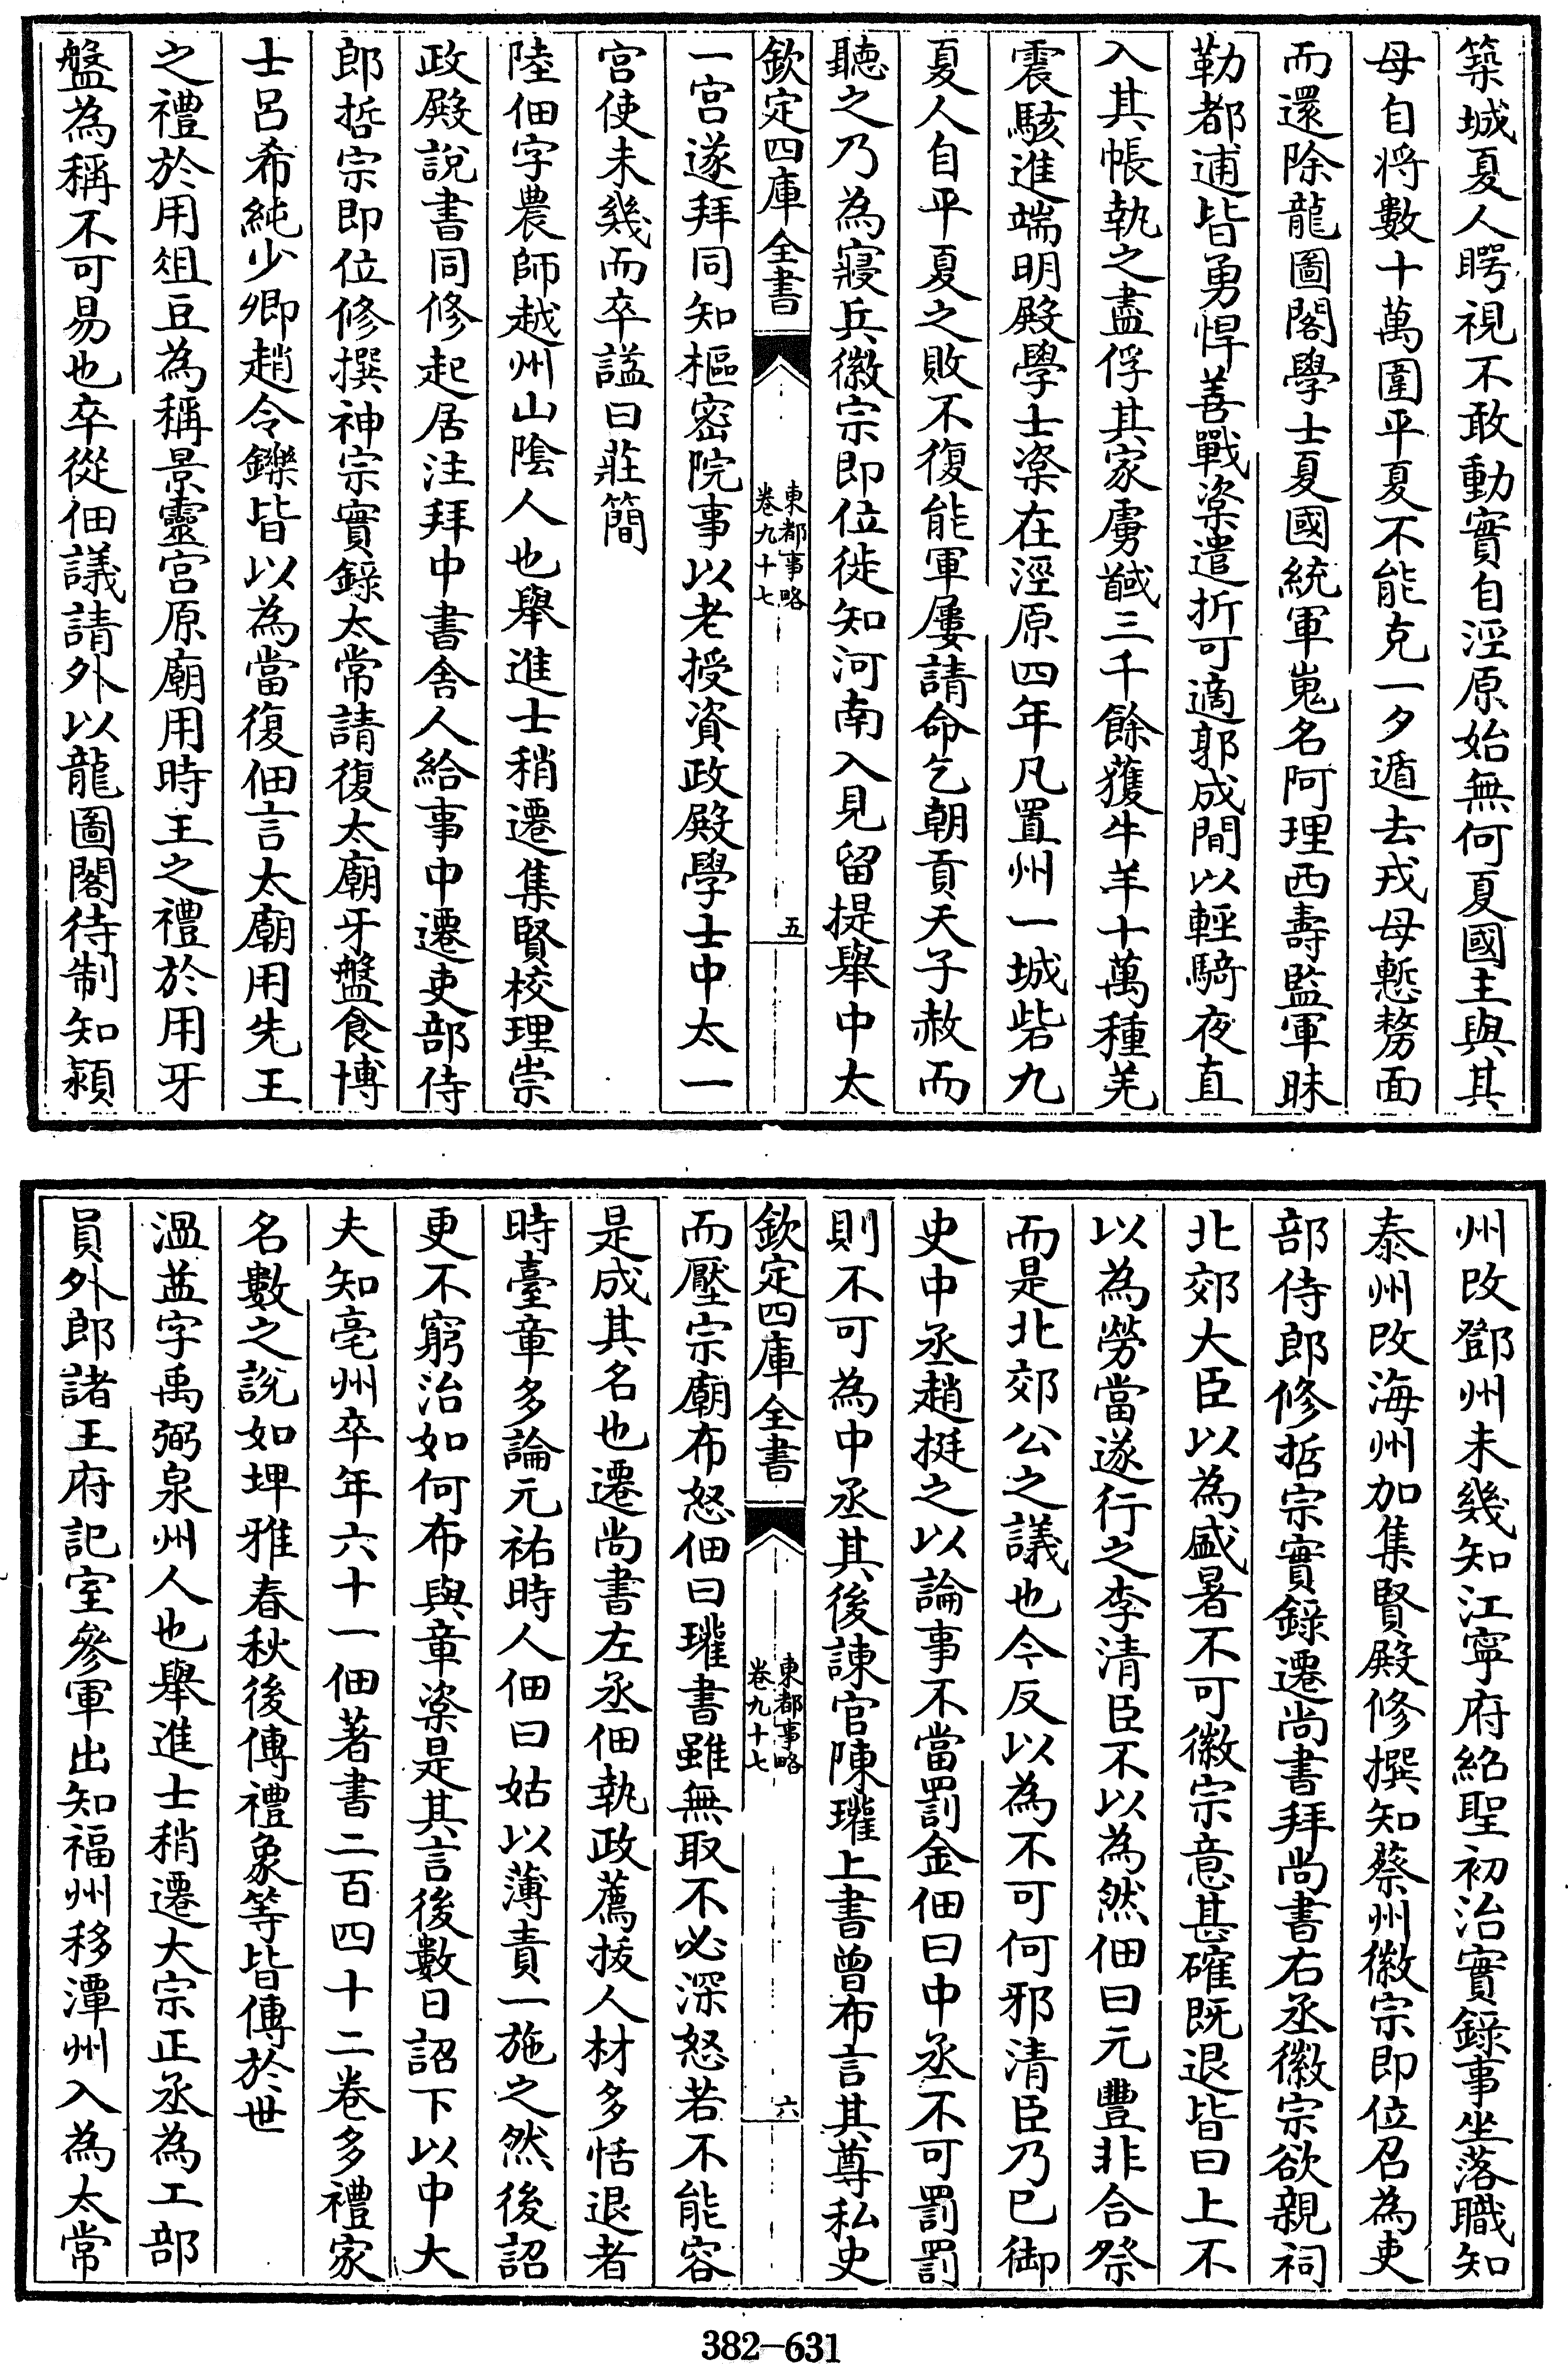 築城夏人睯視不敢動實自涇原始無何夏國主與其
母自将數十萬圍平夏不能克一夕遁去戎母慙剺面
而還除龍圖閣學士夏國統軍嵬名阿理西壽監軍昧
勒都逋皆勇悍善戰楶遣折可適郭成閒以輕騎夜直
入其帳執之盡俘其家虜馘三千餘獲牛羊十萬種羌
震駭進端明殿學士楶在涇原四年凡置州一城砦九
夏人自平夏之敗不復能軍屢請命乞朝貢天子赦而
聽之乃為寢兵徽宗即位徙知河南入見留提舉中太
欽定四庫全書
東都事略
卷九十七
五
一宮遂拜同知樞密院事以老授資政殿學士中太一
宮使未幾而卒諡曰莊簡
陸佃字農師越州山陰人也舉進士稍遷集賢校理崇
政殿說書同修起居注拜中書舍人給事中遷吏部侍
郎哲宗即位修撰神宗實錄太常請復太廟牙盤食博
士呂希純少卿趙令鑠皆以為當復佃言太廟用先王
之禮於用俎豆為稱景靈宮原廟用時王之禮於用牙
盤為稱不可易也卒從佃議請外以龍圖閣待制知潁
州改鄧州未幾知江寧府紹聖初治實錄事坐落職知
泰州改海州加集賢殿修撰知蔡州徽宗即位召為吏
部侍郎修哲宗實錄遷尚書拜尚書右丞徽宗欲親祠
北郊大臣以為盛暑不可徽宗意甚確既退皆曰上不
以為勞當遂行之李清臣不以為然佃曰元豐非合祭
而是北郊公之議也今反以為不可何邪清臣乃已御
史中丞趙挺之以論事不當罰金佃曰中丞不可罰罰
則不可為中丞其後諫官陳瓘上書曾布言其尊私史
欽定四庫全書
東都事略
卷九十七
六
而壓宗廟布怒佃曰瓘書雖無取不必深怒若不能容
是成其名也遷尚書左丞佃執政薦拔人材多恬退者
時臺章多論元祐時人佃曰姑以薄責一施之然後詔
更不窮治如何布與章楶是其言後數日詔下以中大
夫知亳州卒年六十一佃著書二百四十二卷多禮家
名數之說如埤雅春秋後傳禮象等皆傳於世
溫益字禹弼泉州人也舉進士稍遷大宗正丞為工部
員外郎諸王府記室參軍出知福州移潭州入為太常
382-631